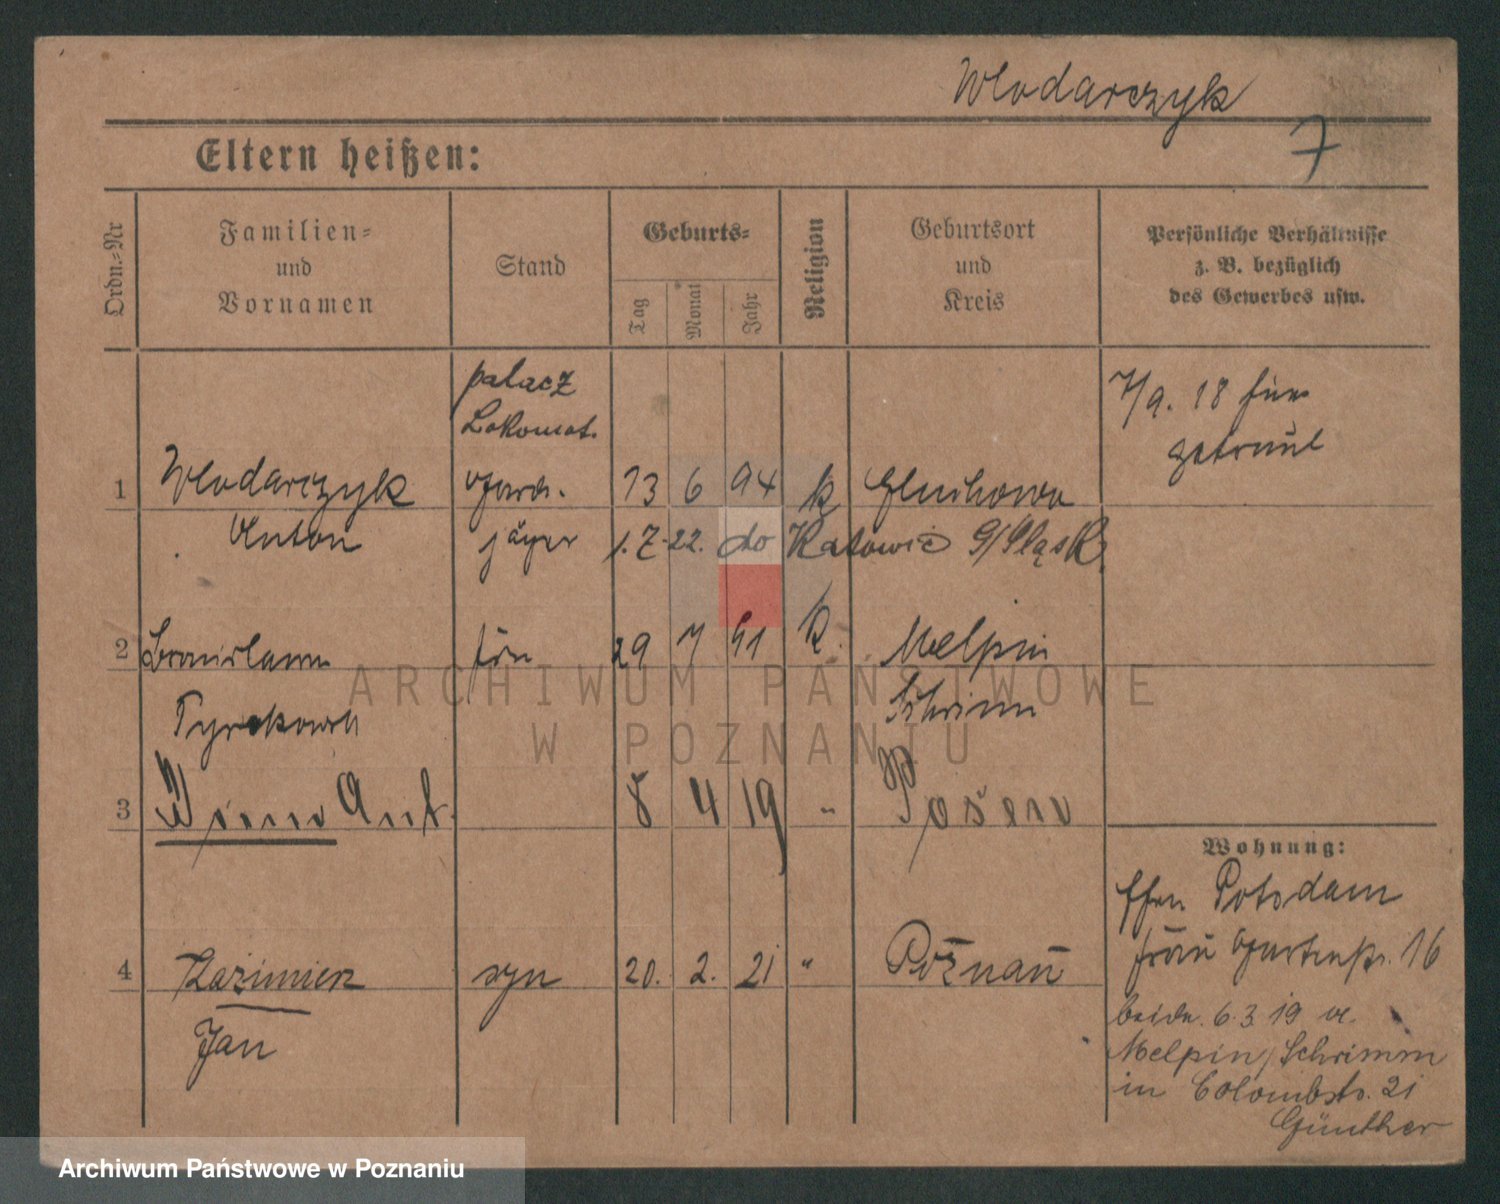 Wlodarczyk
7
Eltern heißen:
Ordn.-Nr
Familien- und Vornamen
Stand
Geburts-
Tag
Monat
Jahr
Religion
Geburtsort und Kreis
Persönliche Verhältnisse
z. B. bezüglich
des Gewerbes usw.
palacz
Lokomot.
7/9. 18 hier
getraut
1 Wlodarczyk 13 6 94 k
Anton jäger 1.7.22. do Katowic G/Śląsk
2 29 7 91 k. Melpin
Schrimm
3 8 4 19 " Posen
Wohnung:
Potsdam
16
4 Kazimierz syn 20. 2. 21 " Poznań
Jan
beide. 6. 3. 19 v.
Melpin/Schrimm
in Colombstr. 21
Günther
ARCHIWUM PAŃSTWOWE
W POZNANIU
Archiwum Państwowe w Poznaniu